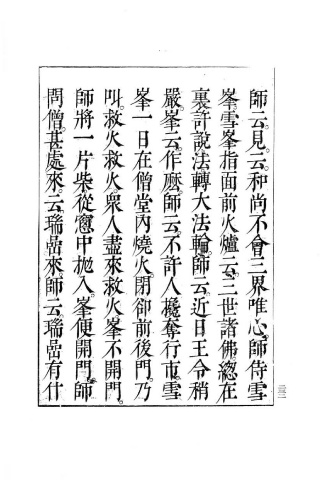 師云見云和尚不會三界唯心師侍雪
峯雪峯指面前火爐云三世諸佛總在
裏許說法轉大法輪師云近日王令稍
嚴峯云作麽師云不許人攙奪行市雪
峯一日在僧堂內燒火閉卻前後門乃
叫救火救火眾人盡來救火峯不開門
師將一片柴從窻中拋入峯便開門師
問僧甚處來云瑞嵒來師云瑞嵒有什